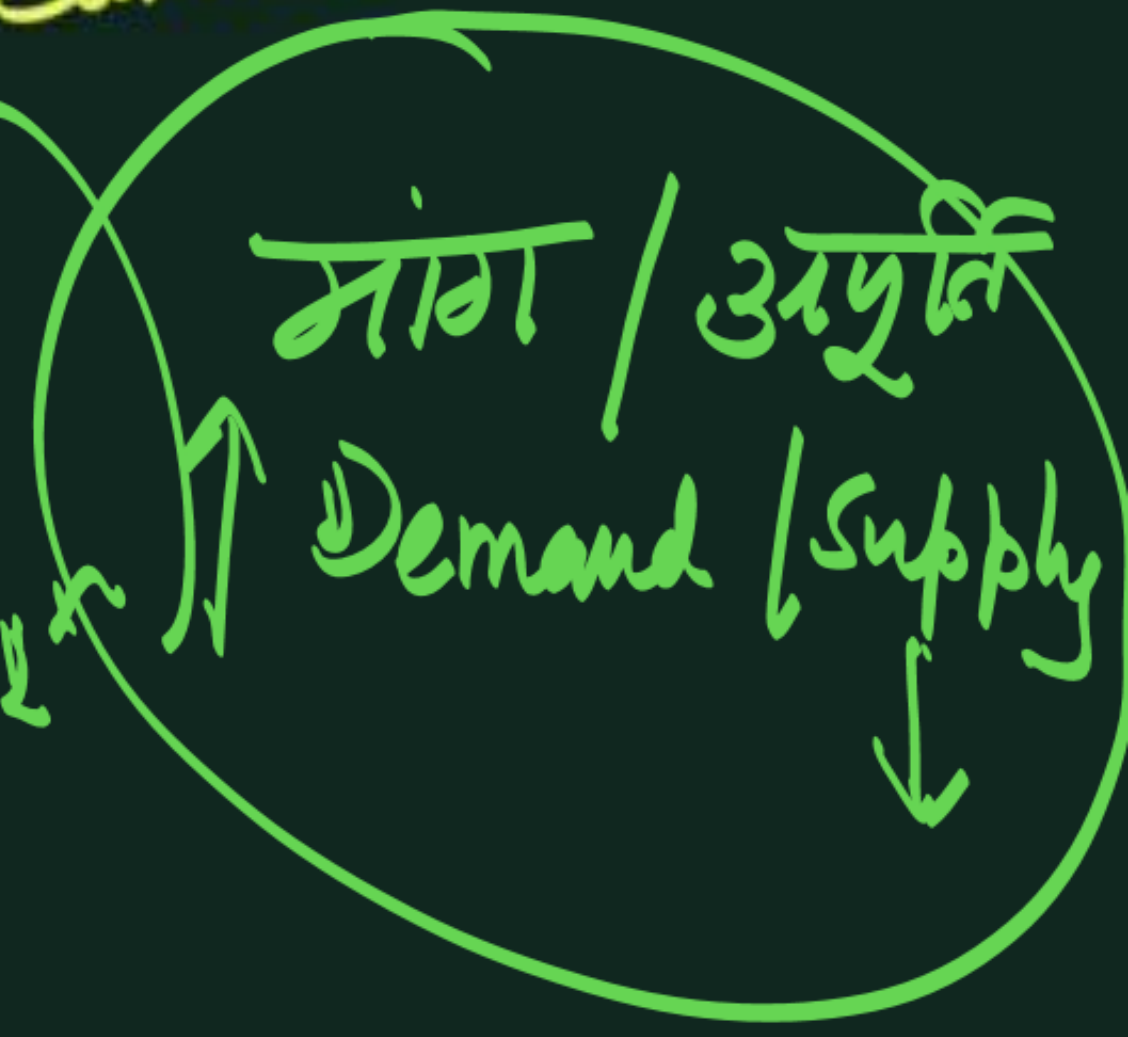 मांग / आपूर्ति
↑ Demand / Supply ↓